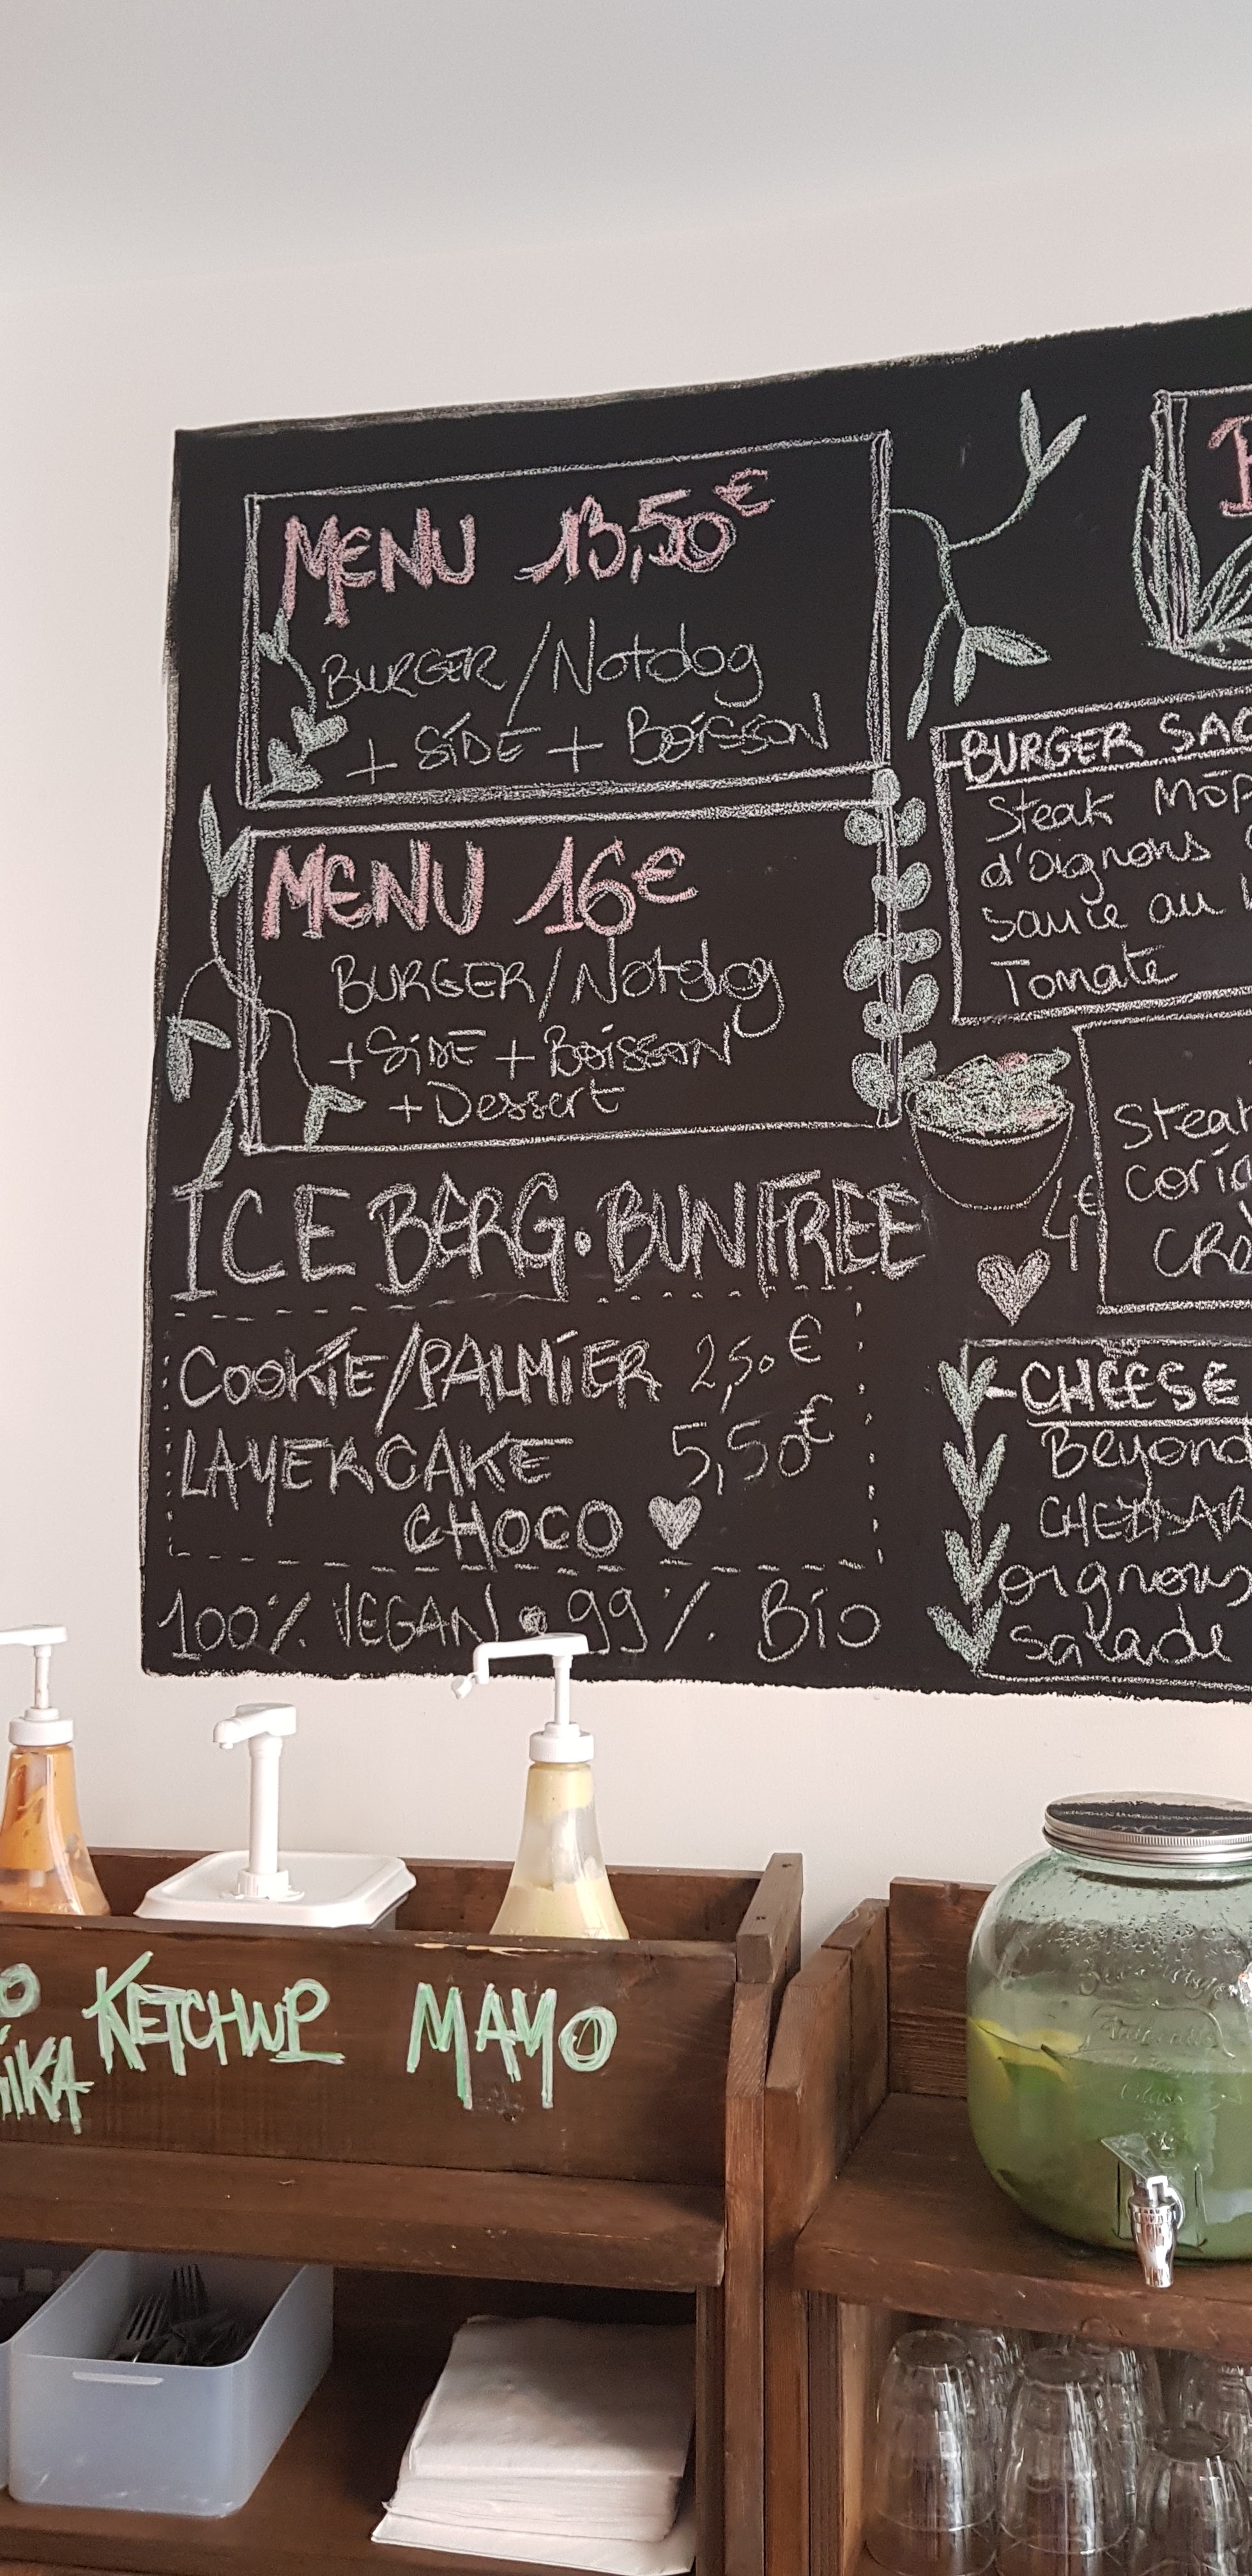 MENU 13,50€
BURGER/Notdog
+ SiDE + Boisson
MENU 16€
BURGER/Notdog
+ SiDE + Boisson
+ Dessert
ICE BERG • BUN FREE
COOKiE/PALMiER 2,50€
LAYER CAKE 5,50€
CHOCO
100% VEGAN • 99% Bio
4€
BURGER
Steak
d'oignons
sauce au
Tomate
Steak
CHEESE
Beyond
CHEDDAR
oignons
salade
KETCHUP
MAYO